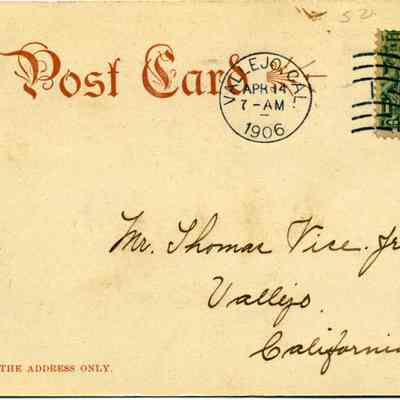 52
Post Card
VALLEJO, CAL.
APR 14
7-AM
1906
Mr. Thomas Vice. Jr
Vallejo.
California
THE ADDRESS ONLY.